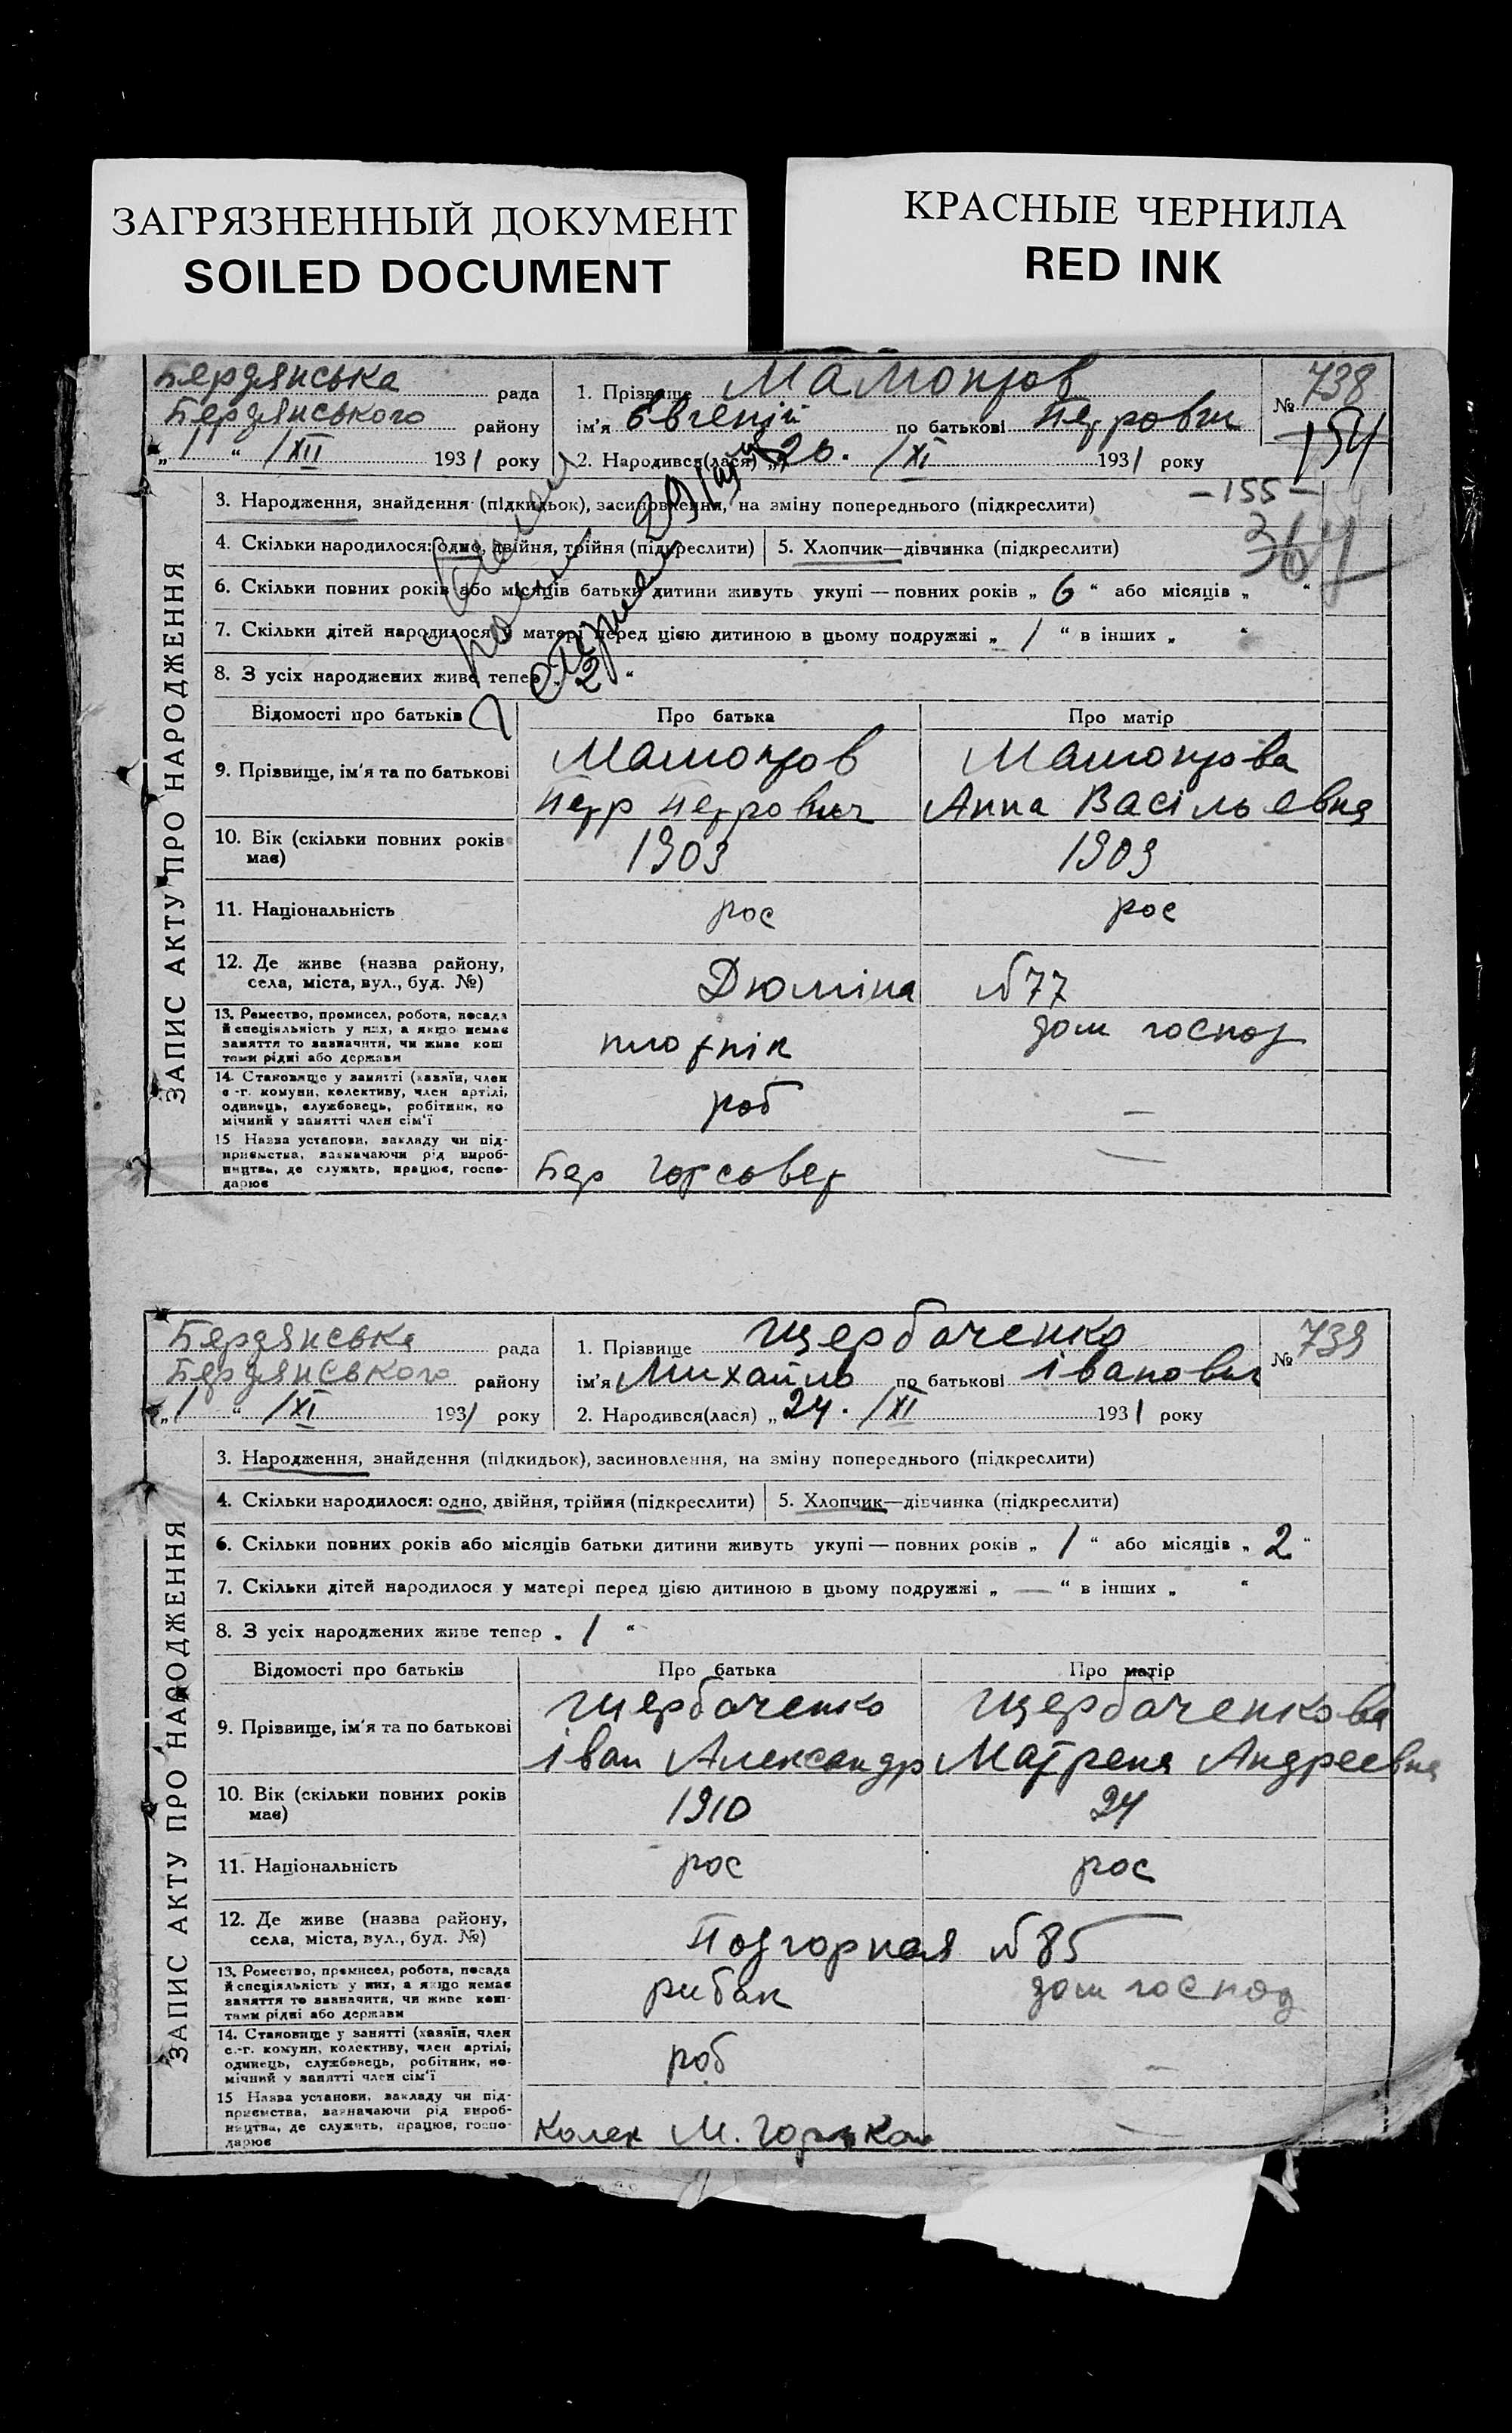 ЗАГРЯЗНЕННЫЙ ДОКУМЕНТ
SOILED DOCUMENT
КРАСНЫЕ ЧЕРНИЛА
RED INK
ЗАПИС АКТУ ПРО НАРОДЖЕННЯ
Бердянська рада
Бердянського району
„1“ /XII 1931 року
1. Прізвище Мамонтов
ім'я Євгеній по батькові Петрович
2. Народився(лася) „26. /XI 1931 року
№ 738
154
- 155 -
364
3. Народження, знайдення (підкидьок), засиновлення, на зміну попереднього (підкреслити)
4. Скільки народилося: одно, двійня, трійня (підкреслити) 5. Хлопчик—дівчинка (підкреслити)
6. Скільки повних років або місяців батьки дитини живуть укупі — повних років „ 6 “ або місяців „ “
7. Скільки дітей народилося у матері перед цією дитиною в цьому подружжі „ 1 “ в інших „ “
8. З усіх народжених живе тепер „ 2 “
Відомості про батьків Про батька Про матір
9. Прізвище, ім'я та по батькові
Мамонтов Мамонтова
Петр Петрович Анна Васільевна
10. Вік (скільки повних років має) 1903 1909
11. Національність рос рос
12. Де живе (назва району, села, міста, вул., буд. №) Дюміна №77
13. Ремество, промисел, робота, посада
й спеціяльність у них, а якщо немає
заняття то зазначити, чи живе кош
тами рідні або держави
плотнік дом господ
14. Становище у занятті (хазяїн, член
с.-г. комуни, колективу, член артілі,
одинець, службовець, робітник, по
мічний у занятті член сім'ї
роб —
15 Назва установи, закладу чи під-
приємства, зазначаючи рід вироб-
ництва, де служить, працює, госпо-
дарює
Бер Горсовет —
ЗАПИС АКТУ ПРО НАРОДЖЕННЯ
Бердянська рада
Бердянського району
„1“ /XI 1931 року
1. Прізвище Щербаченко
ім'я Михайло по батькові Іванович
2. Народився(лася) „24. /XI 1931 року
№ 739
3. Народження, знайдення (підкидьок), засиновлення, на зміну попереднього (підкреслити)
4. Скільки народилося: одно, двійня, трійня (підкреслити) 5. Хлопчик—дівчинка (підкреслити)
6. Скільки повних років або місяців батьки дитини живуть укупі — повних років „ 1 “ або місяців „ 2 “
7. Скільки дітей народилося у матері перед цією дитиною в цьому подружжі „ — “ в інших „ “
8. З усіх народжених живе тепер „ 1 “
Відомості про батьків Про батька Про матір
9. Прізвище, ім'я та по батькові
Щербаченко Щербаченкова
Іван Александр Матрена Андреевна
10. Вік (скільки повних років має) 1910 24
11. Національність рос рос
12. Де живе (назва району, села, міста, вул., буд. №) Подгорная №85
13. Ремество, промисел, робота, посада
й спеціяльність у них, а якщо немає
заняття то зазначити, чи живе кош-
тами рідні або держави
рибак дом господ
14. Становище у занятті (хазяїн, член
с.-г. комуни, колективу, член артілі,
одинець, службовець, робітник, по-
мічний у занятті член сім'ї
роб —
15 Назва установи, закладу чи під-
приємства, зазначаючи рід вироб-
ництва, де служить, працює, госпо-
дарює
Колек М. Горького —